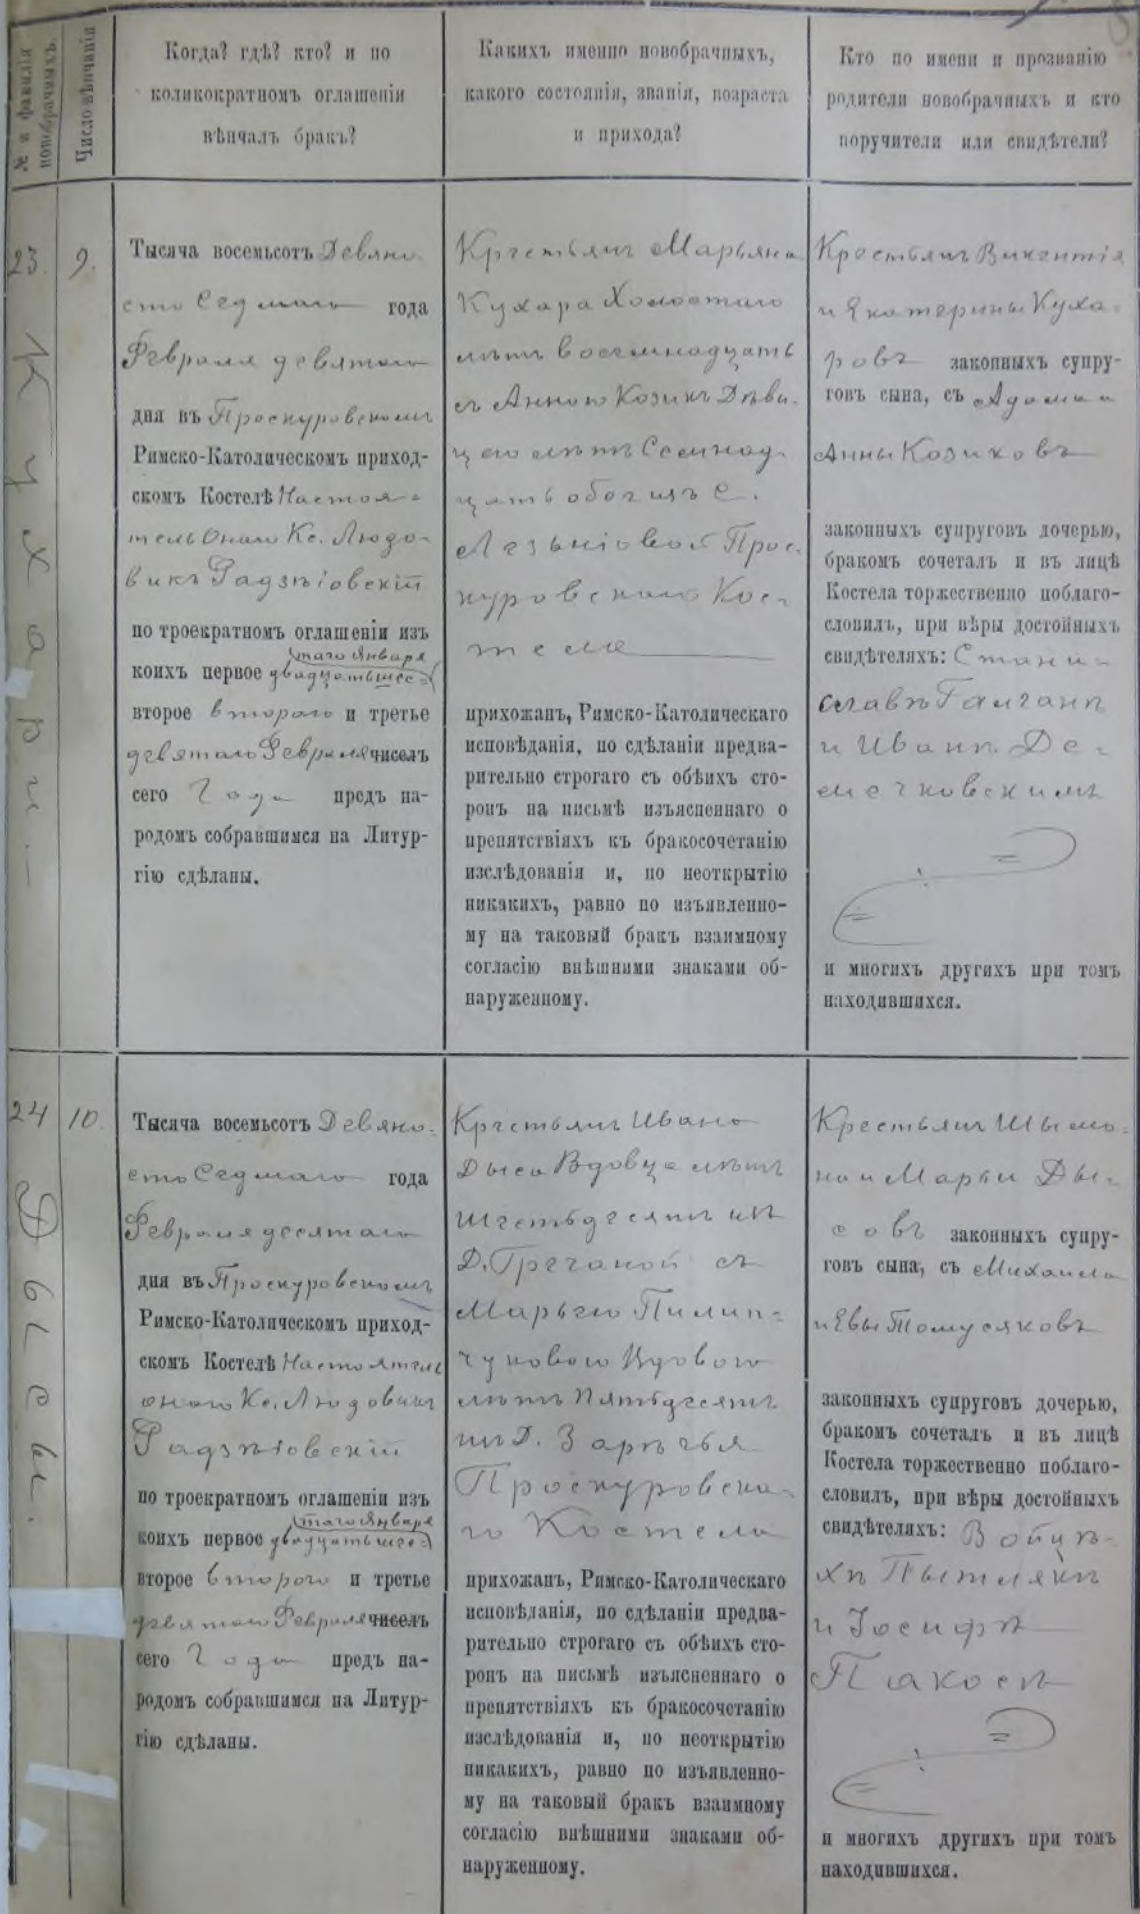 № и фамилія новобрачныхъ.
Число вѣнчанія
Когда? гдѣ? кто? и по
коликократномъ оглашеніи
вѣнчалъ бракъ?
Какихъ именно новобрачныхъ,
какого состоянія, званія, возраста
и прихода?
Кто по имени и прозванію
родители новобрачныхъ и кто
поручители или свидѣтели?
23.
Кухары
9.
Тысяча восемьсотъ Девяно
сто Седмаго года
Февраля девятаго
дня въ Проскуровскомъ
Римско-Католическомъ приход-
скомъ Костелѣ Настоя=
тель Онаго Кс. Людо=
викъ Радзѣіовскій
по троекратномъ оглашеніи изъ
коихъ первое двадцатьшес=
таго Января
второе втораго и третье
девятаго Февраля чиселъ
сего Года предъ на-
родомъ собравшимся на Литур-
гію сдѣланы.
Крестьянъ Марьяна
Кухара Холостаго
лѣтъ восемнадцать
съ Анною Козикъ Дѣви=
цею лѣтъ Семнад=
цать обоихъ с.
Лезьніовой Прос=
куровскаго Кос=
тела
прихожанъ, Римско-Католическаго
исповѣданія, по сдѣланіи предва-
рительно строгаго съ обѣихъ сто-
ронъ на письмѣ изъясненнаго о
препятствіяхъ къ бракосочетанію
изслѣдованія и, по неоткрытію
никакихъ, равно по изъявленно-
му на таковый бракъ взаимному
согласію внѣшними знаками об-
наруженному.
Крестьянъ Викентія
и Екатерины Куха=
ровъ законныхъ супру-
говъ сына, съ Адама и
Анны Козиковъ
законныхъ супруговъ дочерью,
бракомъ сочеталъ и въ лицѣ
Костела торжественно поблаго-
словилъ, при вѣры достойныхъ
свидѣтеляхъ: Стани=
славѣ Галганѣ
и Иванѣ
и многихъ другихъ при томъ
находившихся.
24
Дысы.
10.
Тысяча восемьсотъ Девяно=
сто Седмаго года
Февраля десятаго
дня въ Проскуровскомъ
Римско-Католическомъ приход-
скомъ Костелѣ Настоятель
онаго Кс. Людовикъ
Радзѣіовскій
по троекратномъ оглашеніи изъ
коихъ первое двадцатьшес=
таго Января
второе втораго и третье
девятаго Февраля чиселъ
сего Года предъ на-
родомъ собравшимся на Литур-
гію сдѣланы.
Крестьянъ Ивана
Дыса Вдовца лѣтъ
Шестьдесятъ изъ
Д. Гречаной съ
Марьею Пилип=
чуковою Вдовою
лѣтъ Пятьдесятъ
изъ Д. Зарѣчья
Проскуровска=
го Костела
прихожанъ, Римско-Католическаго
исповѣданія, по сдѣланіи предва-
рительно строгаго съ обѣихъ сто-
ронъ на письмѣ изъясненнаго о
препятствіяхъ къ бракосочетанію
изслѣдованія и, по неоткрытію
никакихъ, равно по изъявленно-
му на таковый бракъ взаимному
согласію внѣшними знаками об-
наруженному.
Крестьянъ Шымо=
на и Марьи Ды=
совъ законныхъ супру-
говъ сына, съ Михаила
и Евы Томусяковъ
законныхъ супруговъ дочерью,
бракомъ сочеталъ и въ лицѣ
Костела торжественно поблаго-
словилъ, при вѣры достойныхъ
свидѣтеляхъ: Войцѣ=
хѣ Пытлякѣ
и Іосифѣ
Пакосѣ
и многихъ другихъ при томъ
находившихся.